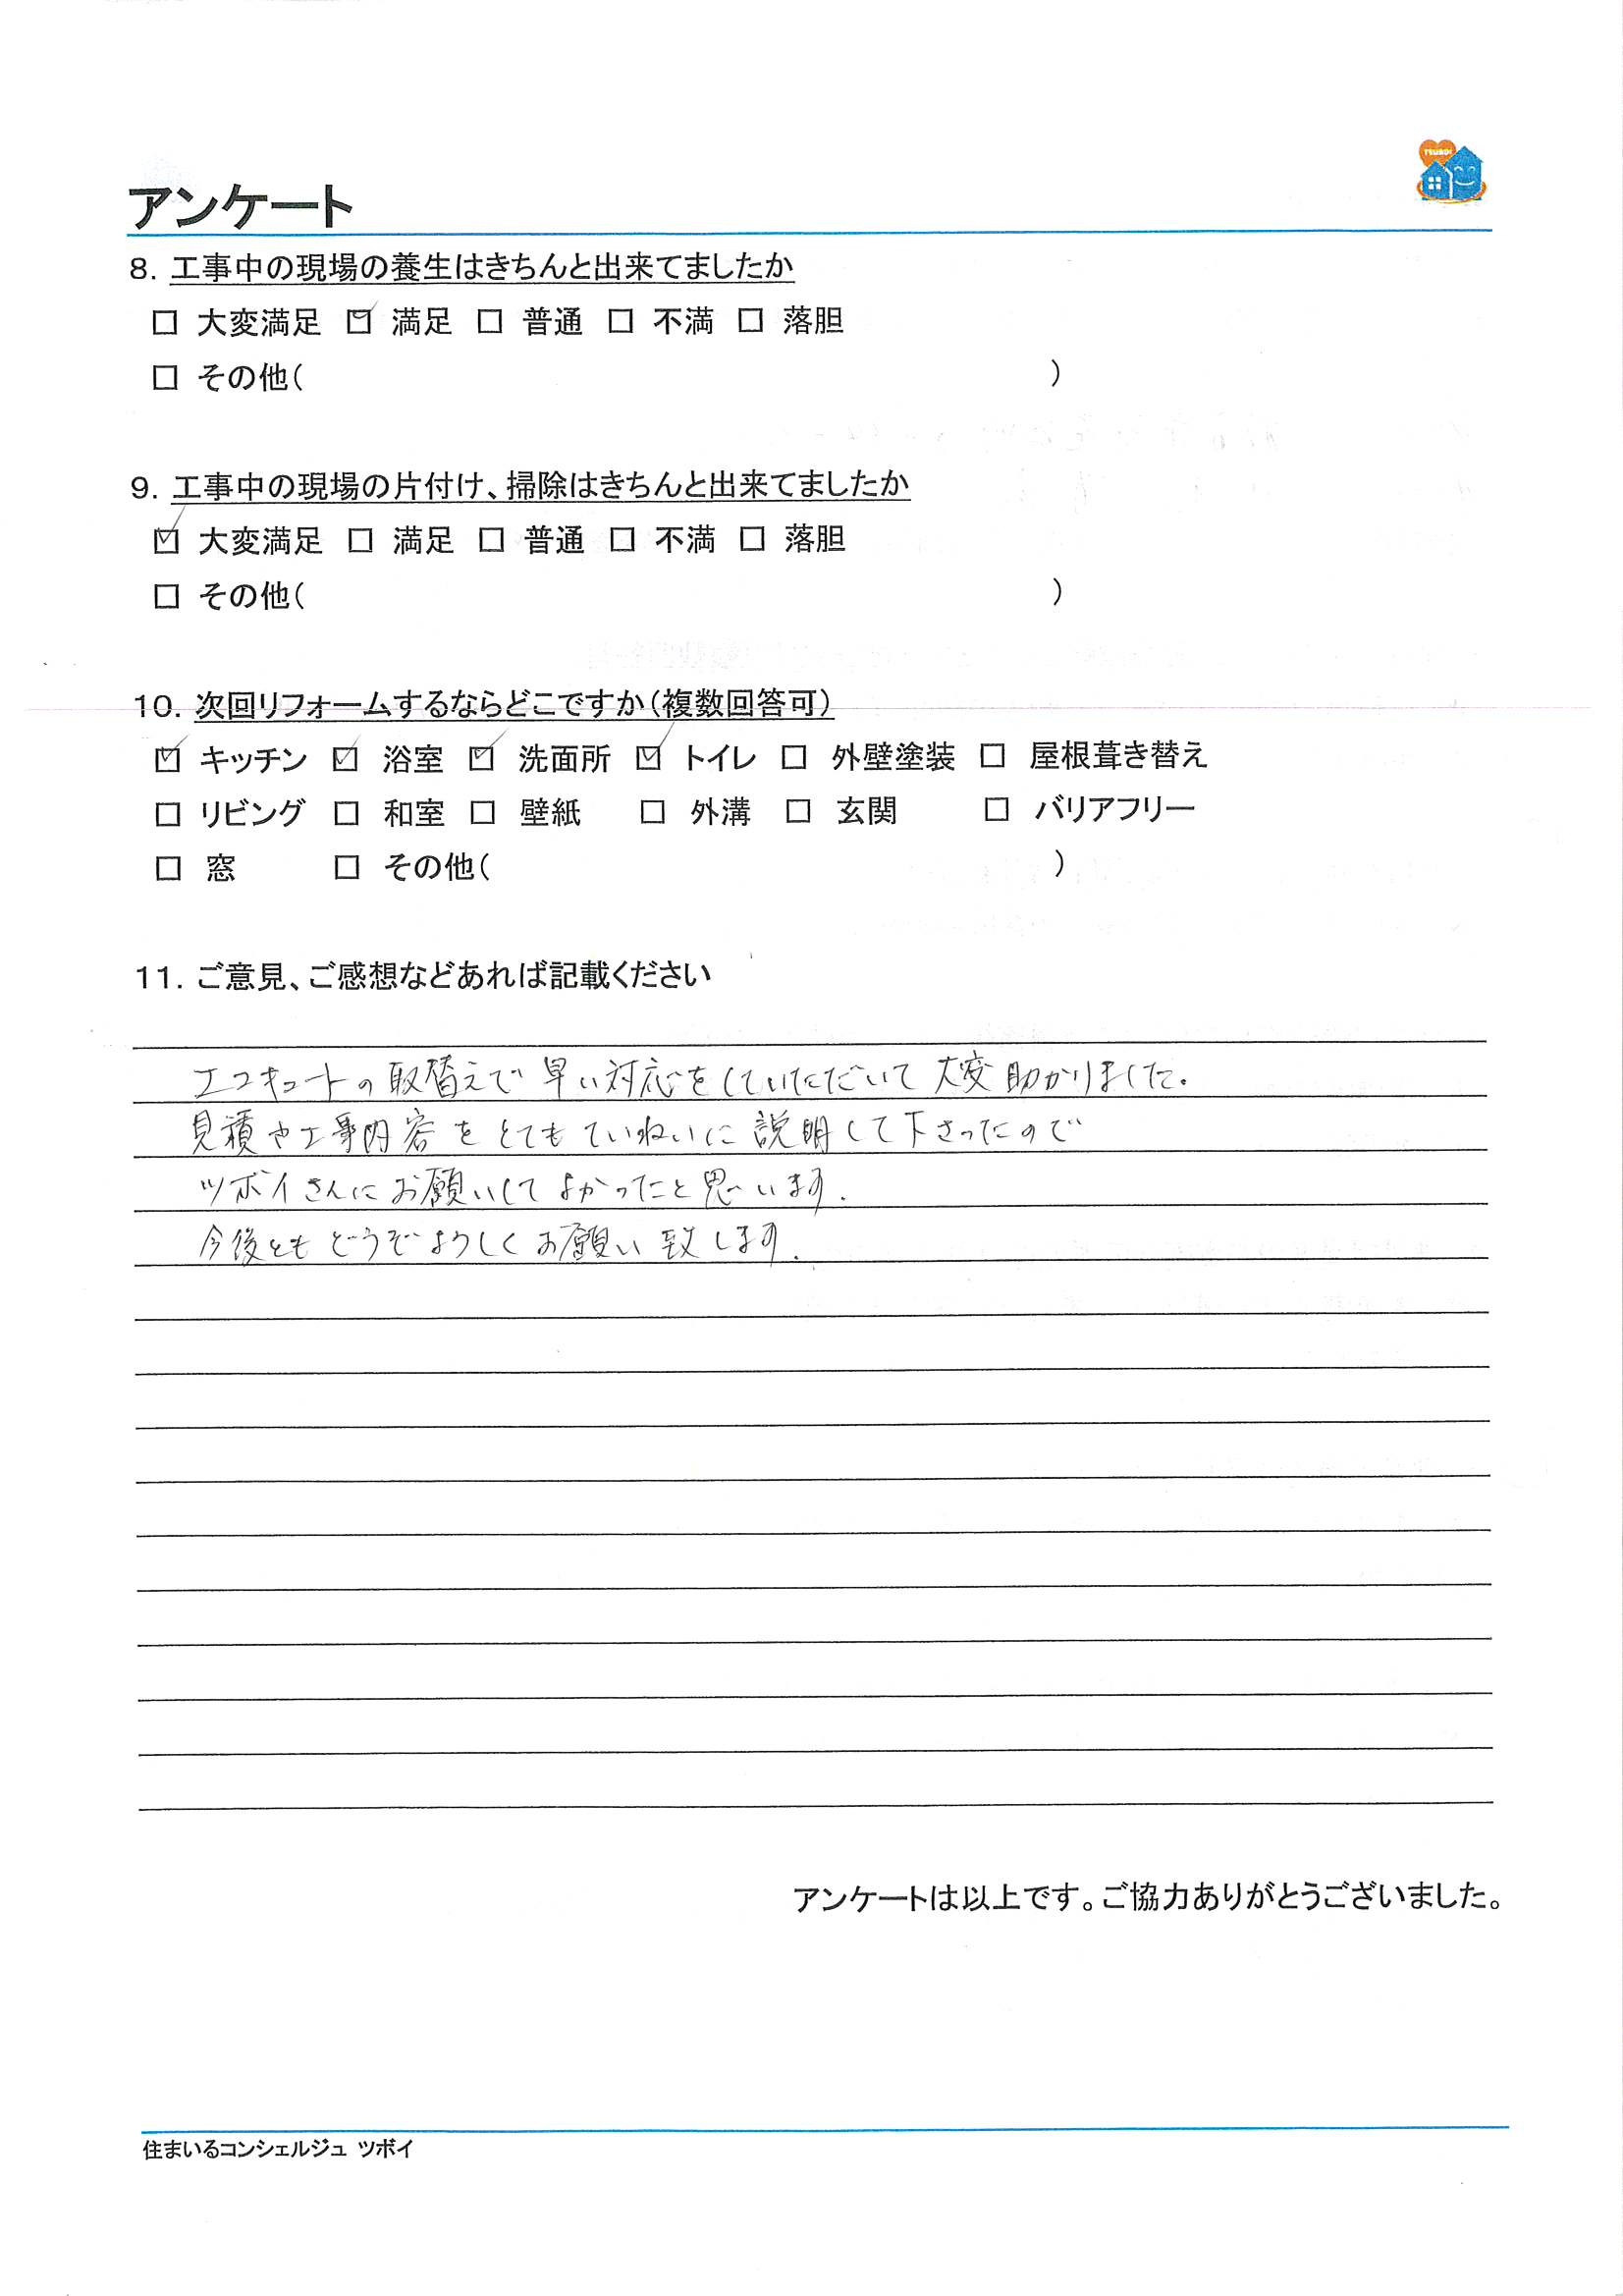 TSUBOI
アンケート
8. 工事中の現場の養生はきちんと出来てましたか
□ 大変満足 ☑ 満足 □ 普通 □ 不満 □ 落胆
□ その他( )
9. 工事中の現場の片付け、掃除はきちんと出来てましたか
☑ 大変満足 □ 満足 □ 普通 □ 不満 □ 落胆
□ その他( )
10. 次回リフォームするならどこですか(複数回答可)
☑ キッチン ☑ 浴室 ☑ 洗面所 ☑ トイレ □ 外壁塗装 □ 屋根葺き替え
□ リビング □ 和室 □ 壁紙 □ 外溝 □ 玄関 □ バリアフリー
□ 窓 □ その他( )
11. ご意見、ご感想などあれば記載ください
エコキュートの取替えで早い対応をしていただいて大変助かりました。
見積や工事内容をとてもていねいに説明して下さったので
ツボイさんにお願いしてよかったと思います。
今後ともどうぞよろしくお願い致します。
アンケートは以上です。ご協力ありがとうございました。
住まいるコンシェルジュ ツボイ